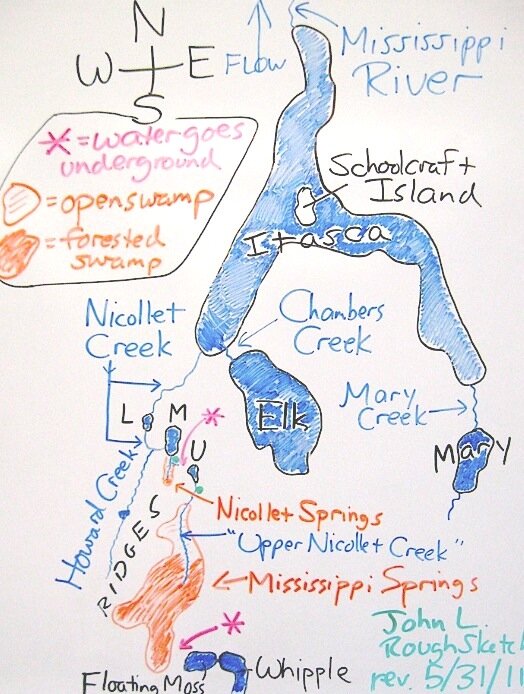 N
W E
S
FLOW
Mississippi
River
* = water goes
underground
= open swamp
= forested
swamp
Schoolcraft
Island
Itasca
Nicollet
Creek
Chambers
Creek
Elk
Mary
Creek
Mary
L
M
U
Howard Creek
RIDGES
Nicollet Springs
"Upper Nicollet Creek"
Mississippi Springs
*
*
Floating Moss
Whipple
John L.
Rough Sketch
rev. 5/31/11